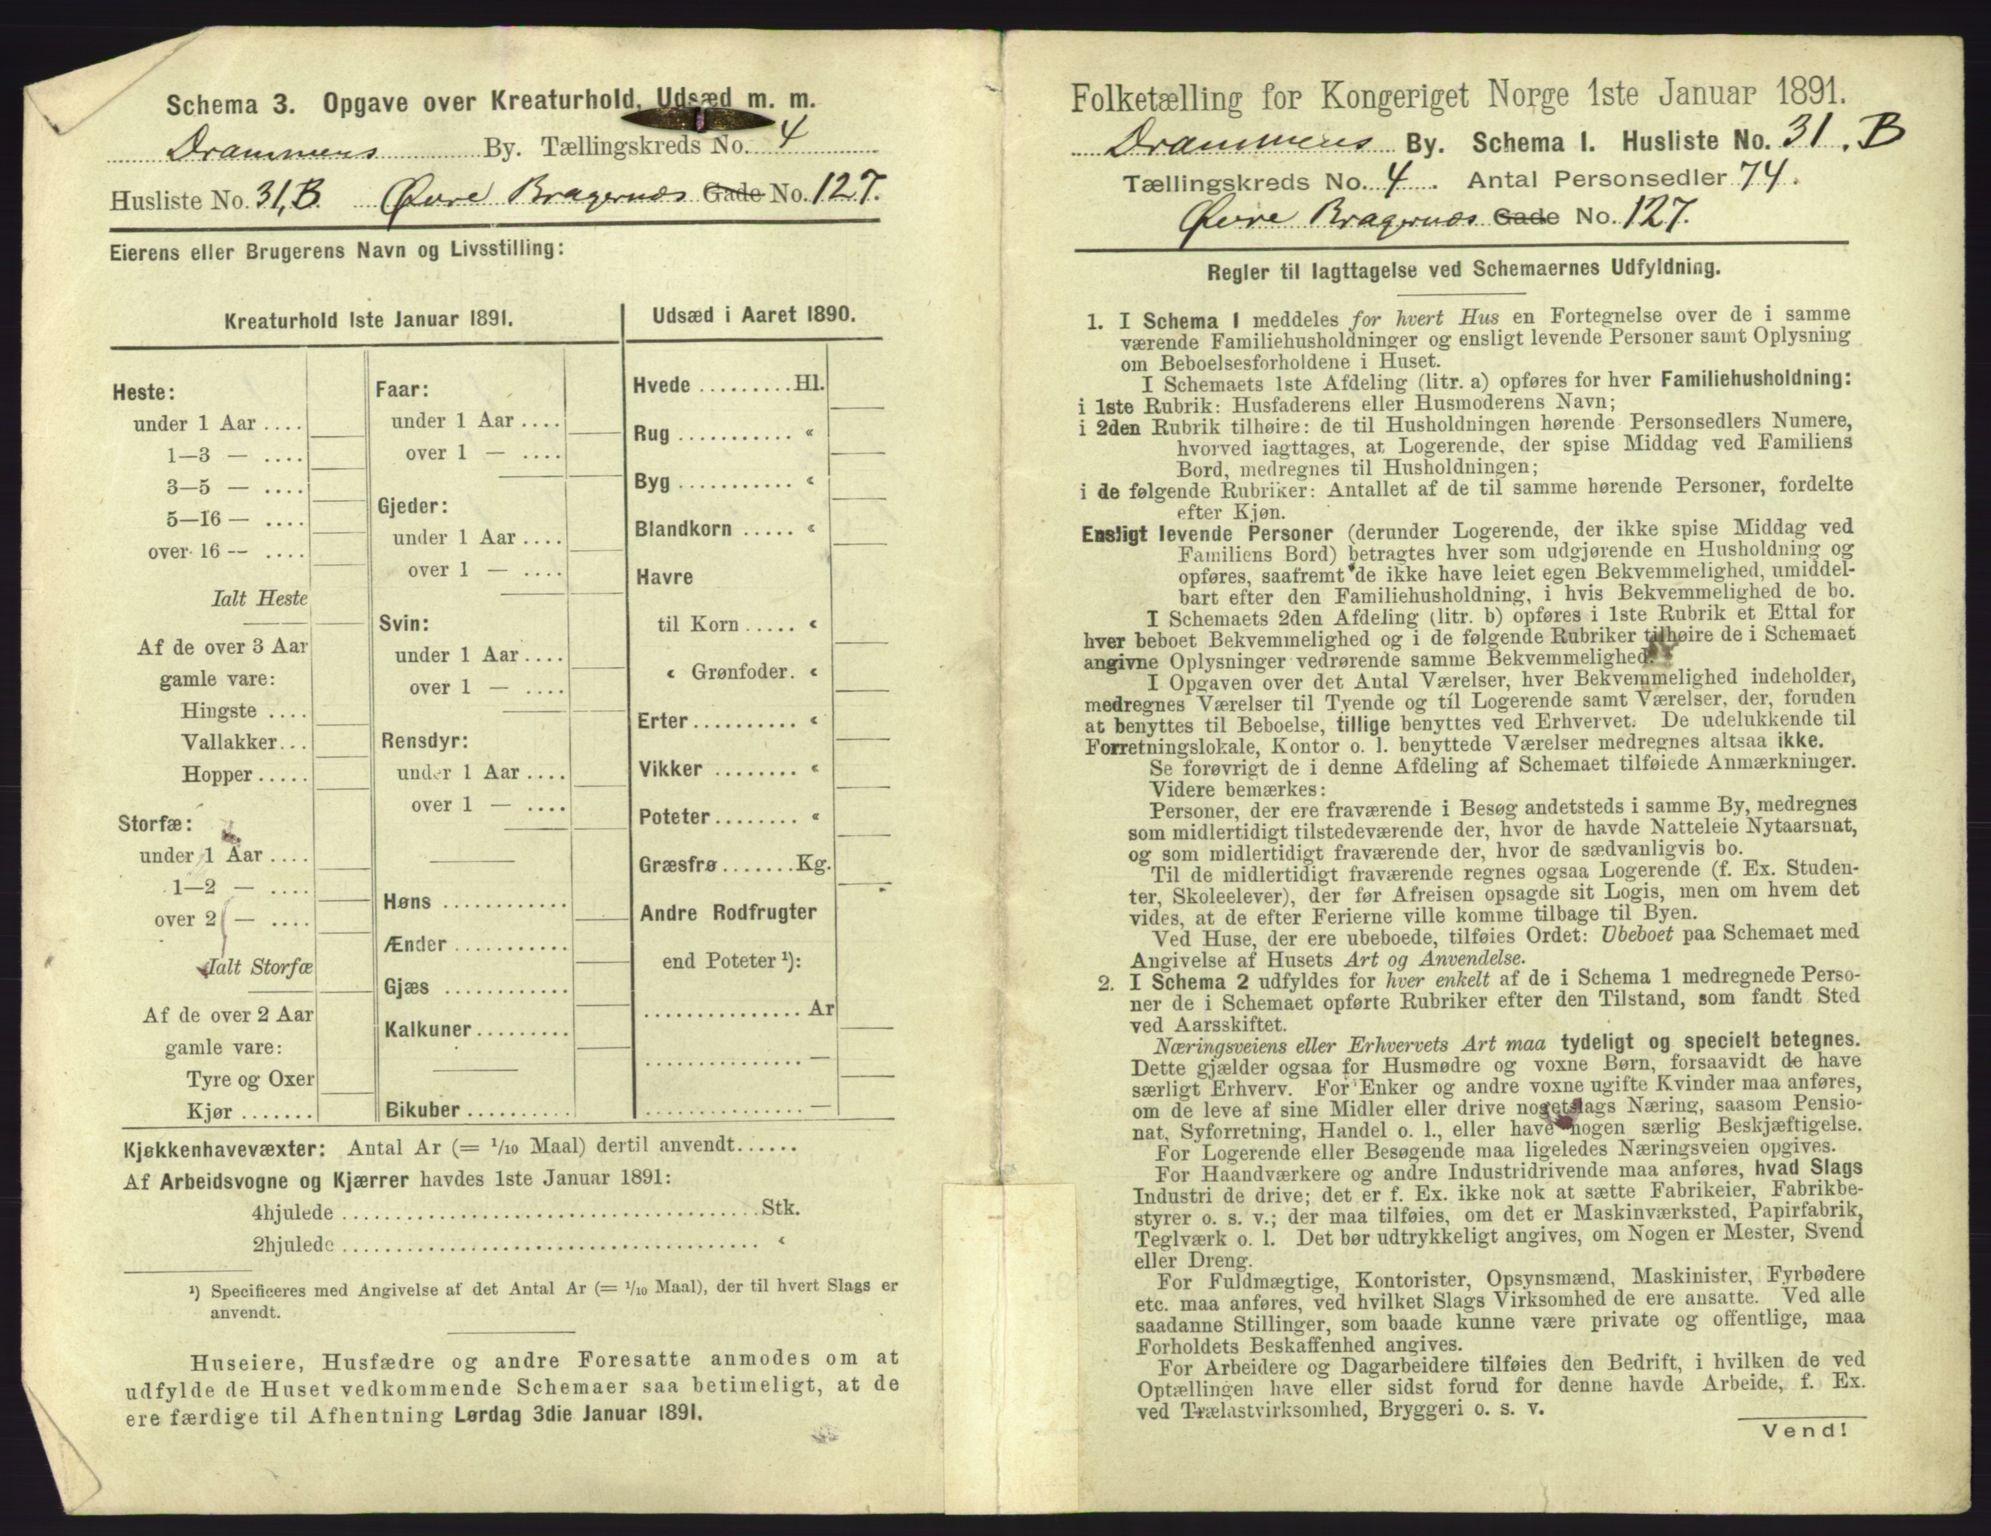 Schema 3. Opgave over Kreaturhold, Udsæd m. m.
Drammens By. Tællingskreds No. 4
Husliste No. 31,B. Øvre Bragernæs Gade No. 127.
Eierens eller Brugerens Navn og Livsstilling:
Kreaturhold 1ste Januar 1891.
Heste:
under 1 Aar ....
1—3 — ....
3—5 — ....
5—16 — ....
over 16 — ....
Ialt Heste
Af de over 3 Aar
gamle vare:
Hingste ....
Vallakker...
Hopper .....
Storfæ:
under 1 Aar ....
1—2 — ....
over 2 — ....
Ialt Storfæ
Af de over 2 Aar
gamle vare:
Tyre og Oxer
Kjør .......
Faar:
under 1 Aar ....
over 1 — ....
Gjeder:
under 1 Aar ....
over 1 — ....
Svin:
under 1 Aar ....
over 1 — ....
Rensdyr:
under 1 Aar ....
over 1 — ....
Høns ...........
Ænder ...........
Gjæs ...........
Kalkuner.........
Bikuber ..........
Udsæd i Aaret 1890.
Hvede .........Hl.
Rug ........... «
Byg ........... «
Blandkorn ..... «
Havre
til Korn ..... «
« Grønfoder. «
Erter .......... «
Vikker ........ «
Poteter ........ «
Græsfrø .......Kg.
Andre Rodfrugter
end Poteter ¹):
............... Ar
............... —
............... —
Kjøkkenhavevæxter: Antal Ar (= 1/10 Maal) dertil anvendt......
Af Arbeidsvogne og Kjærrer havdes 1ste Januar 1891:
4hjulede ........................................Stk.
2hjulede ........................................ «
¹) Specificeres med Angivelse af det Antal Ar (= 1/10 Maal), der til hvert Slags er
anvendt.
Huseiere, Husfædre og andre Foresatte anmodes om at
udfylde de Huset vedkommende Schemaer saa betimeligt, at de
ere færdige til Afhentning Lørdag 3die Januar 1891.
Folketælling for Kongeriget Norge 1ste Januar 1891.
Drammens By. Schema 1. Husliste No. 31.B
Tællingskreds No. 4. Antal Personsedler 74.
Øvre Bragernæs Gade No. 127.
Regler til Iagttagelse ved Schemaernes Udfyldning.
1. I Schema 1 meddeles for hvert Hus en Fortegnelse over de i samme
værende Familiehusholdninger og ensligt levende Personer samt Oplysning
om Beboelsesforholdene i Huset.
I Schemaets 1ste Afdeling (litr. a) opføres for hver Familiehusholdning:
i 1ste Rubrik: Husfaderens eller Husmoderens Navn;
i 2den Rubrik tilhøire: de til Husholdningen hørende Personsedlers Numere,
hvorved iagttages, at Logerende, der spise Middag ved Familiens
Bord, medregnes til Husholdningen;
i de følgende Rubriker: Antallet af de til samme hørende Personer, fordelte
efter Kjøn.
Ensligt levende Personer (derunder Logerende, der ikke spise Middag ved
Familiens Bord) betragtes hver som udgjørende en Husholdning og
opføres, saafremt de ikke have leiet egen Bekvemmelighed, umiddel-
bart efter den Familiehusholdning, i hvis Bekvemmelighed de bo.
I Schemaets 2den Afdeling (litr. b) opføres i 1ste Rubrik et Ettal for
hver beboet Bekvemmelighed og i de følgende Rubriker tilhøire de i Schemaet
angivne Oplysninger vedrørende samme Bekvemmelighed.
I Opgaven over det Antal Værelser, hver Bekvemmelighed indeholder,
medregnes Værelser til Tyende og til Logerende samt Værelser, der, foruden
at benyttes til Beboelse, tillige benyttes ved Erhvervet. De udelukkende til
Forretningslokale, Kontor o. l. benyttede Værelser medregnes altsaa ikke.
Se forøvrigt de i denne Afdeling af Schemaet tilføiede Anmærkninger.
Videre bemærkes:
Personer, der ere fraværende i Besøg andetsteds i samme By, medregnes
som midlertidigt tilstedeværende der, hvor de havde Natteleie Nytaarsnat,
og som midlertidigt fraværende der, hvor de sædvanligvis bo.
Til de midlertidigt fraværende regnes ogsaa Logerende (f. Ex. Studen-
ter, Skoleelever), der før Afreisen opsagde sit Logis, men om hvem det
vides, at de efter Ferierne ville komme tilbage til Byen.
Ved Huse, der ere ubeboede, tilføies Ordet: Ubeboet paa Schemaet med
Angivelse af Husets Art og Anvendelse.
2. I Schema 2 udfyldes for hver enkelt af de i Schema 1 medregnede Perso-
ner de i Schemaet opførte Rubriker efter den Tilstand, som fandt Sted
ved Aarsskiftet.
Næringsveiens eller Erhvervets Art maa tydeligt og specielt betegnes.
Dette gjælder ogsaa for Husmødre og voxne Børn, forsaavidt de have
særligt Erhverv. For Enker og andre voxne ugifte Kvinder maa anføres,
om de leve af sine Midler eller drive nogetslags Næring, saasom Pensio-
nat, Syforretning, Handel o. l., eller have nogen særlig Beskjæftigelse.
For Logerende eller Besøgende maa ligeledes Næringsveien opgives.
For Haandværkere og andre Industridrivende maa anføres, hvad Slags
Industri de drive; det er f. Ex. ikke nok at sætte Fabrikeier, Fabrikbe-
styrer o. s. v.; der maa tilføies, om det er Maskinværksted, Papirfabrik,
Teglværk o. l. Det bør udtrykkeligt angives, om Nogen er Mester, Svend
eller Dreng.
For Fuldmægtige, Kontorister, Opsynsmænd, Maskinister, Fyrbødere
etc. maa anføres, ved hvilket Slags Virksomhed de ere ansatte. Ved alle
saadanne Stillinger, som baade kunne være private og offentlige, maa
Forholdets Beskaffenhed angives.
For Arbeidere og Dagarbeidere tilføies den Bedrift, i hvilken de ved
Optællingen have eller sidst forud for denne havde Arbeide, f. Ex.
ved Trælastvirksomhed, Bryggeri o. s. v.
Vend!